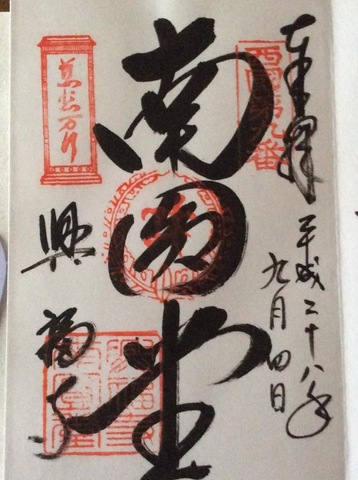 奉拝
平成二十八年
九月四日
西国第九番
南円堂
興福寺